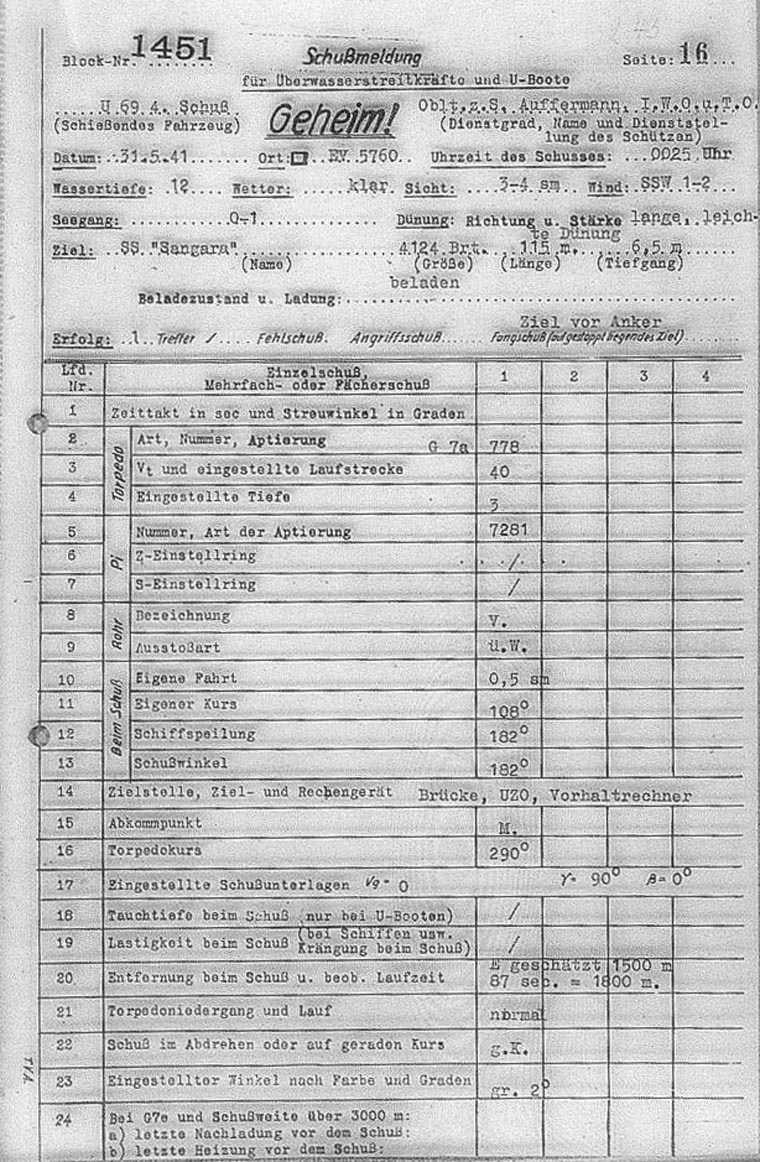 Block-Nr. 1451 Schußmeldung Seite: 16
für Überwasserstreitkräfte und U-Boote
U 69.4. Schuß Geheim! Oblt.z.S. Auffermann, I.W.O.u.T.O.
(Schießendes Fahrzeug) (Dienstgrad, Name und Dienststel-
lung des Schützen)
Datum: 31.5.41 Ort: EV. 5760 Uhrzeit des Schusses: 0025 Uhr
Wassertiefe: 12 Wetter: klar Sicht: 3-4 sm Wind: SSW 1-2
Seegang: 0-1 Dünung: Richtung u. Stärke lange, leich-
te Dünung
Ziel: SS "Sangara" 4124 Brt. 115 m. 6,5 m
(Name) (Größe) (Länge) (Tiefgang)
beladen
Beladezustand u. Ladung:
Ziel vor Anker
Erfolg: 1 Treffer / Fehlschuß. Angriffsschuß Fangschuß (auf gestoppt liegendes Ziel)
Lfd. Nr. Einzelschuß, 1 2 3 4
Mehrfach- oder Fächerschuß
1 Zeittakt in sec und Streuwinkel in Graden
Torpedo
2 Art, Nummer, Aptierung G 7a 778
3 Vt und eingestellte Laufstrecke 40
4 Eingestellte Tiefe 3
Pi
5 Nummer, Art der Aptierung 7281
6 Z-Einstellring /
7 S-Einstellring /
Rohr
8 Bezeichnung V.
9 Ausstoßart ü.W.
Beim Schuß
10 Eigene Fahrt 0,5 sm
11 Eigener Kurs 108°
12 Schiffspeilung 182°
13 Schußwinkel 182°
14 Zielstelle, Ziel- und Rechengerät Brücke, UZO, Vorhaltrechner
15 Abkommpunkt M.
16 Torpedokurs 290°
17 Eingestellte Schußunterlagen Vg = 0 γ = 90° β = 0°
18 Tauchtiefe beim Schuß (nur bei U-Booten) /
19 Lastigkeit beim Schuß (bei Schiffen usw. Krängung beim Schuß) /
20 Entfernung beim Schuß u. beob. Laufzeit E geschätzt 1500 m
87 sec. = 1800 m.
21 Torpedoniedergang und Lauf normal
22 Schuß im Abdrehen oder auf geraden Kurs g.K.
23 Eingestellter Winkel nach Farbe und Graden gr. 2°
24 Bei G7e und Schußweite über 3000 m:
a) letzte Nachladung vor dem Schuß:
b) letzte Heizung vor dem Schuß: